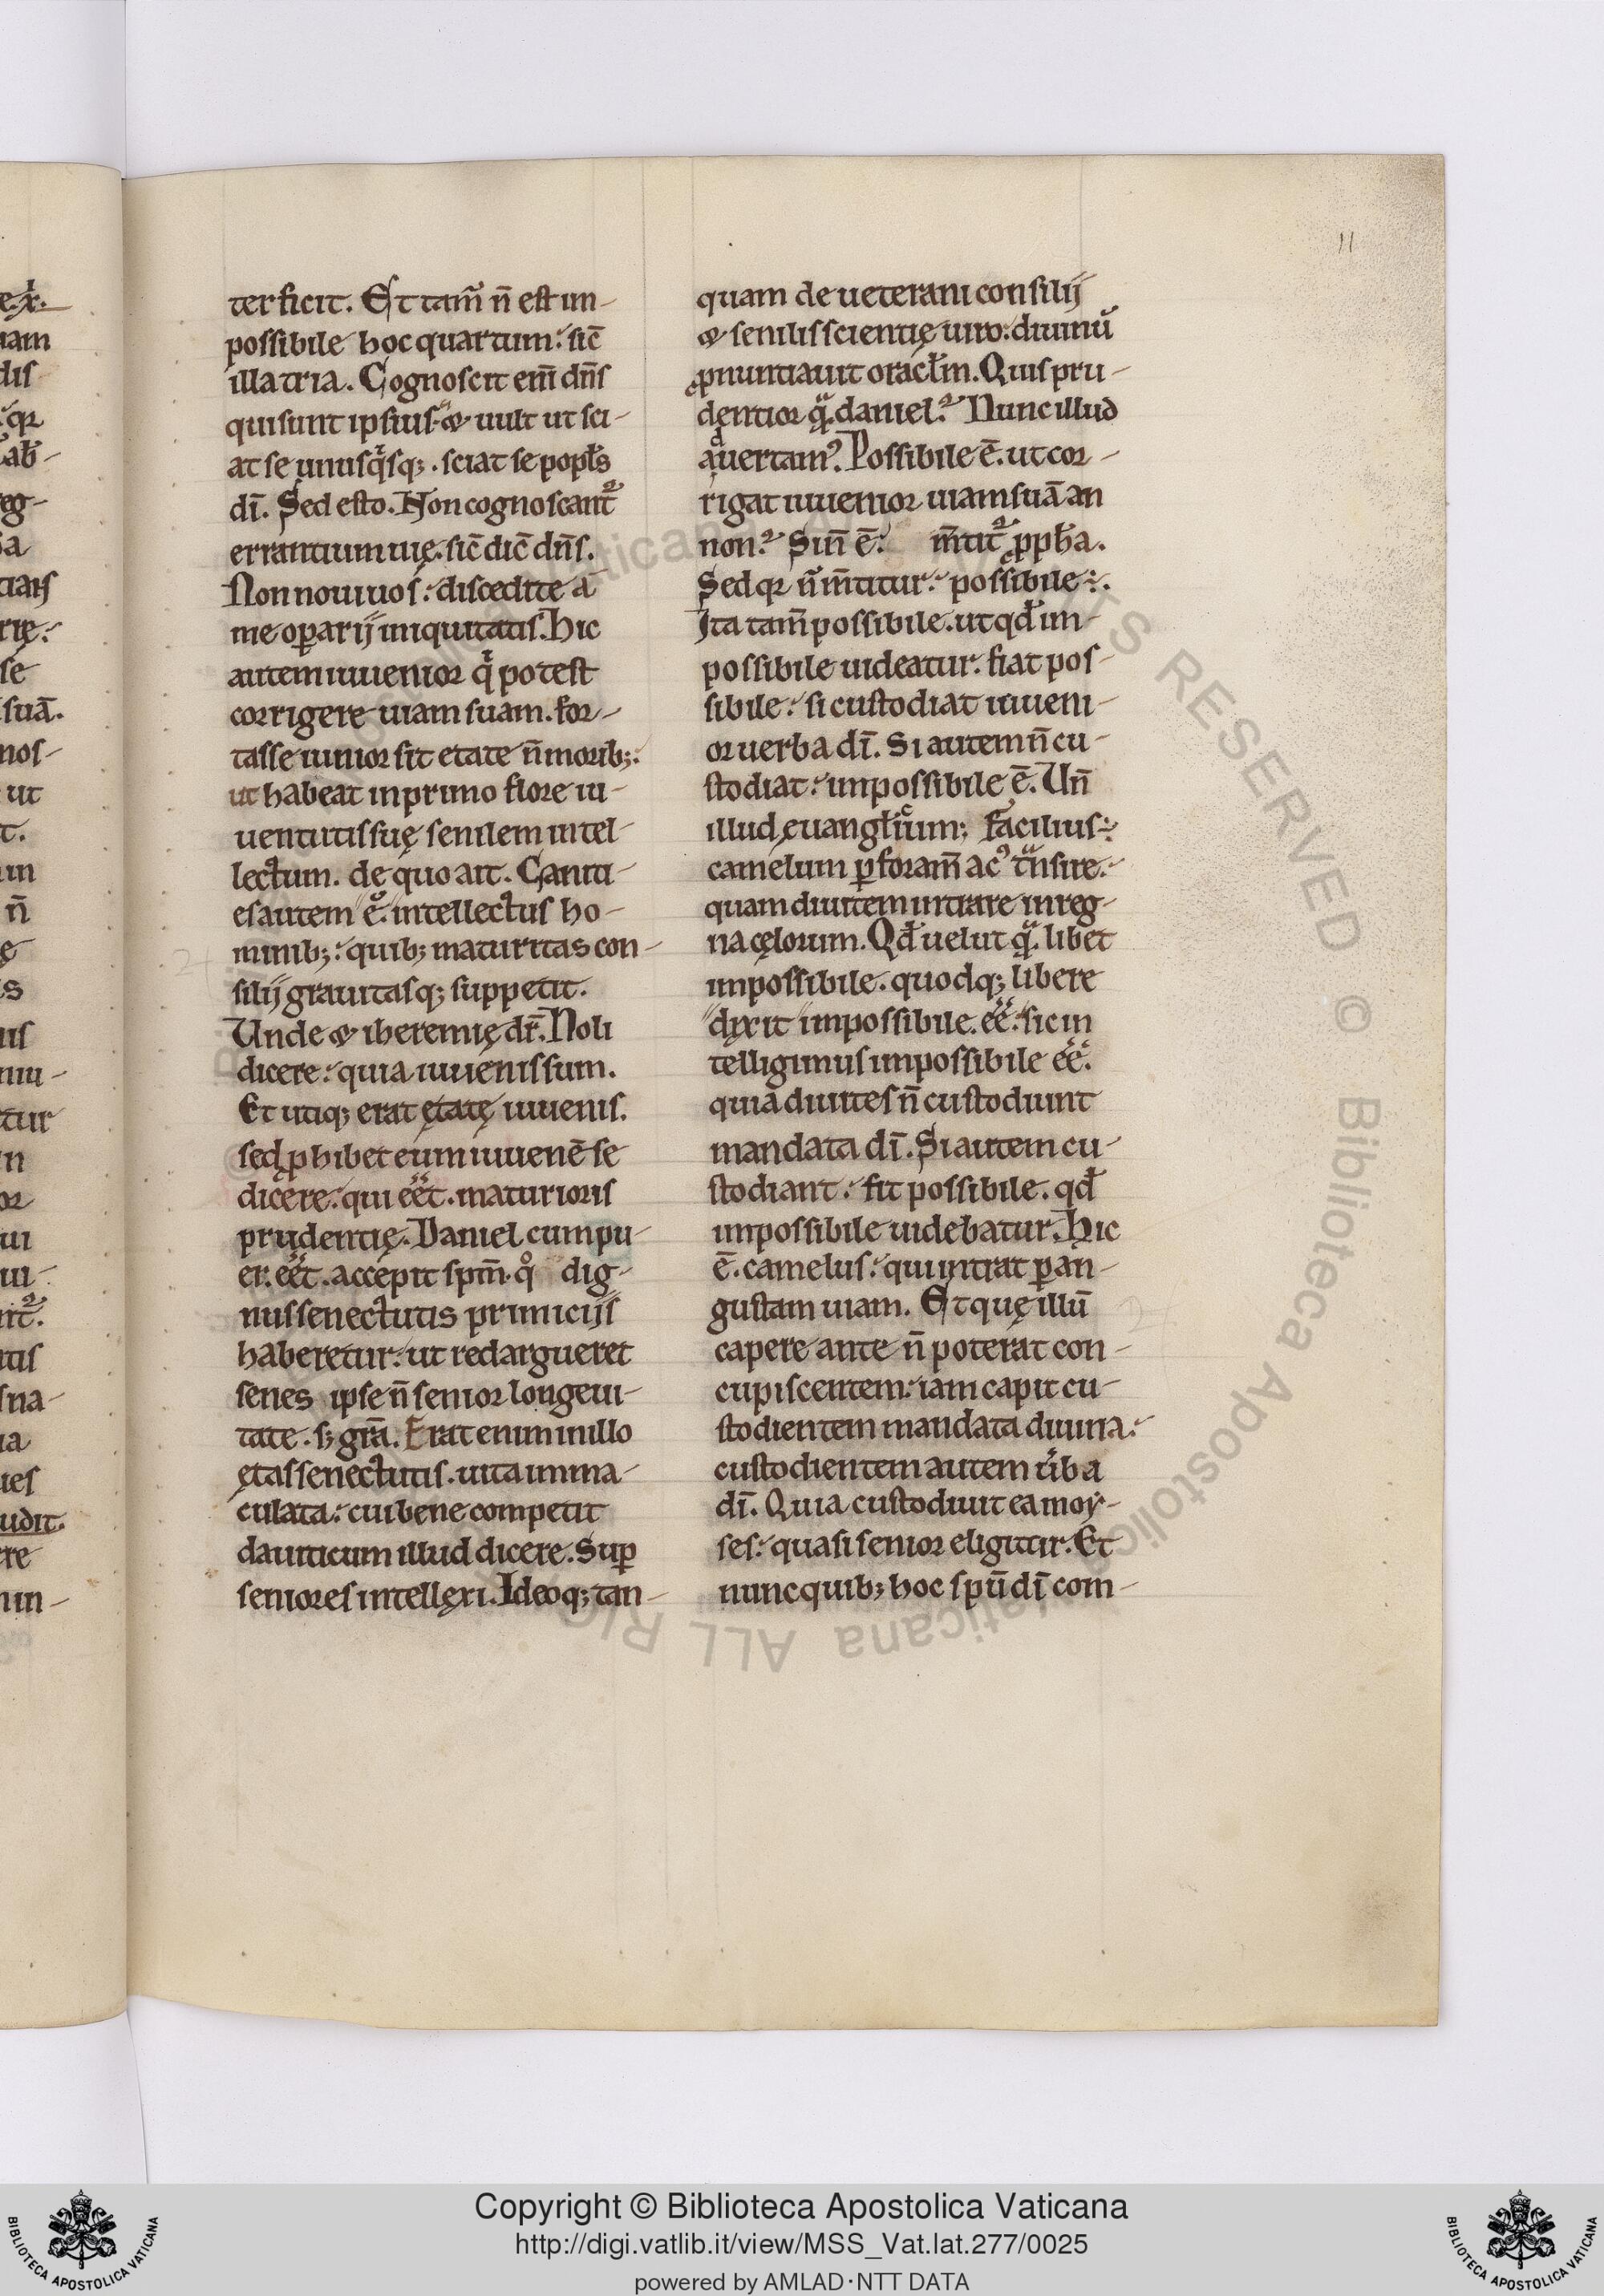 11
terficit. Et tam̅ n̅ est im-
possibile hoc quartum. sic̅
illa tria. Cognoscit eni̅ dn̅s
qui sunt ipsius. & uult ut sci-
at se unusq̍sq;. sciat se popl̅s
di̅. Sed esto. Non cognoscant᷑
errantium uię. sic̅ dic̅ dn̅s.
Non noui uos. discedite a
me oꝑarij iniquitatis. hic
autem iuuenior q̍ potest
corrigere uiam suam. for-
tasse iunior sit etate n̅ morib;.
ut habeat in primo flore iu-
uentutis suę senilem intel-
lectum. de quo ait. Canti-
es autem e̅. intellectus ho-
minib;. quib; maturitas con-
silij grauitasq; suppetit.
Unde & iheremię dr̅. Noli
dicere. quia iuuenis sum.
Et utiq; erat ętatę iuuenis.
sed ꝓhibet eum iuuene̅ se
dicere. qui ee̅t. maturioris
prudentię. Daniel cum pu-
er. ee̅t. accepit spm̅. qͦ dig-
nus senectutis primicijs
haberetur. ut redargueret
senes ipse n̅ senior longeui-
tate. s; gra̅. Erat enim in illo
ętas senectutis. uita imma-
culata. cui bene competit
dauiticum illud dicere. Suꝑ
seniores intellęxi. Ideoq; tan-
quam de ueterani consilij
& senilis scientię uiro. diuinu̅
ꝓnuntiauit oracl̅m. Quis pru-
dentior qͣ. daniel. Nunc illud
aduertam᷒. Possibile e̅. ut cor-
rigat iuuenior uiam sua̅ an
non. Si n̅ e̅. m̅tit᷑ ꝓph̅a.
Sed qr n̅ m̅titur. possibile ÷.
Ita tam̅ possibile. ut qd̅ im-
possibile uideatur. fiat pos-
sibile. si custodiat iuueni-
or uerba di̅. Si autem n̅ cu-
stodiat. impossibile e̅. Un̅
illud euangl̅icum; Facilius ÷
camelum ꝑ foram̅ ac᷒ tͣnsire.
quam diuitem intrare in reg-
na cęlorum. Qd̅ uelut qͣ. libet
impossibile. quodq; libere
dixit impossibile. ee̅. sic in
telligimus impossibile ee̅.
quia diuites n̅ custodiunt
mandata di̅. Si autem cu-
stodiant. fit possibile. qd̅
impossibile uidebatur. hic
e̅. camelus. qui intrat ꝑ an-
gustam uiam. Et quę illu̅
capere ante n̅ poterat con-
cupiscentem. iam capit cu-
stodientem mandata diuina.
custodientem autem ūba
di̅. Quia custodiuit ea moy-
ses. quasi senior eligitur. Et
nunc quib; hoc spu̅ di̅ com-
Copyright © Biblioteca Apostolica Vaticana
http://digi.vatlib.it/view/MSS_Vat.lat.277/0025
powered by AMLAD·NTT DATA
BIBLIOTECA APOSTOLICA VATICANA
BIBLIOTECA APOSTOLICA VATICANA